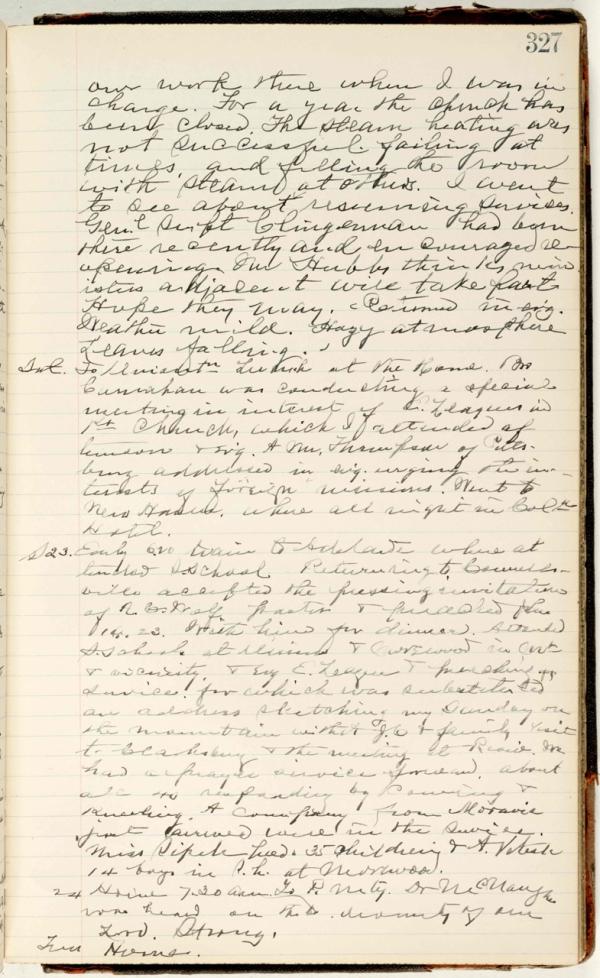 327
our work there when I was in
charge. For a year the church has
been closed. The steam heating was
not successful failing at
times, and filling the room
with steam at others. I went
to see about resuming services.
Genl Supt Clingerman had been
there recently and encouraged re-
opening. Mr Hubbs thinks min-
isters adjacent will take part
Hope they may. Returned in evg.
Weather mild. Hazy atmosphere
Leaves falling.
Sat. To Lunch at the Home. Mr
Carnahan was conducting a special
meeting in interest of E. Leagues in
1st Church, which I attended af
ternoon & Evg. A Mr. Thompson of Pitts-
burg addressed in evg. urging the in-
terests of Foreign missions. Went to
New Haven, where all night in
Hotel.
S 23. Early on train to Adelaide where at
tended S School. Returning to
ville accepted the pressing invitation
of Pastor & preached
19. 23. With him for dinner. Attended
S School at & in
& vicinity, & Evg E. League & preaching
service, for which was substituted
an address sketching my Sunday on
the mountain with & family visit
to & the meeting at
had a prayer service forward, about
all responding by coming &
kneeling. A company from
just arrived were in the service.
Miss had 35 children & A.
14 boys in at
24 Home 7.20 a.m. To P. Mtg. Dr McNaugh
was heard on the divinity of our
Lord. Strong.
Tues Home.